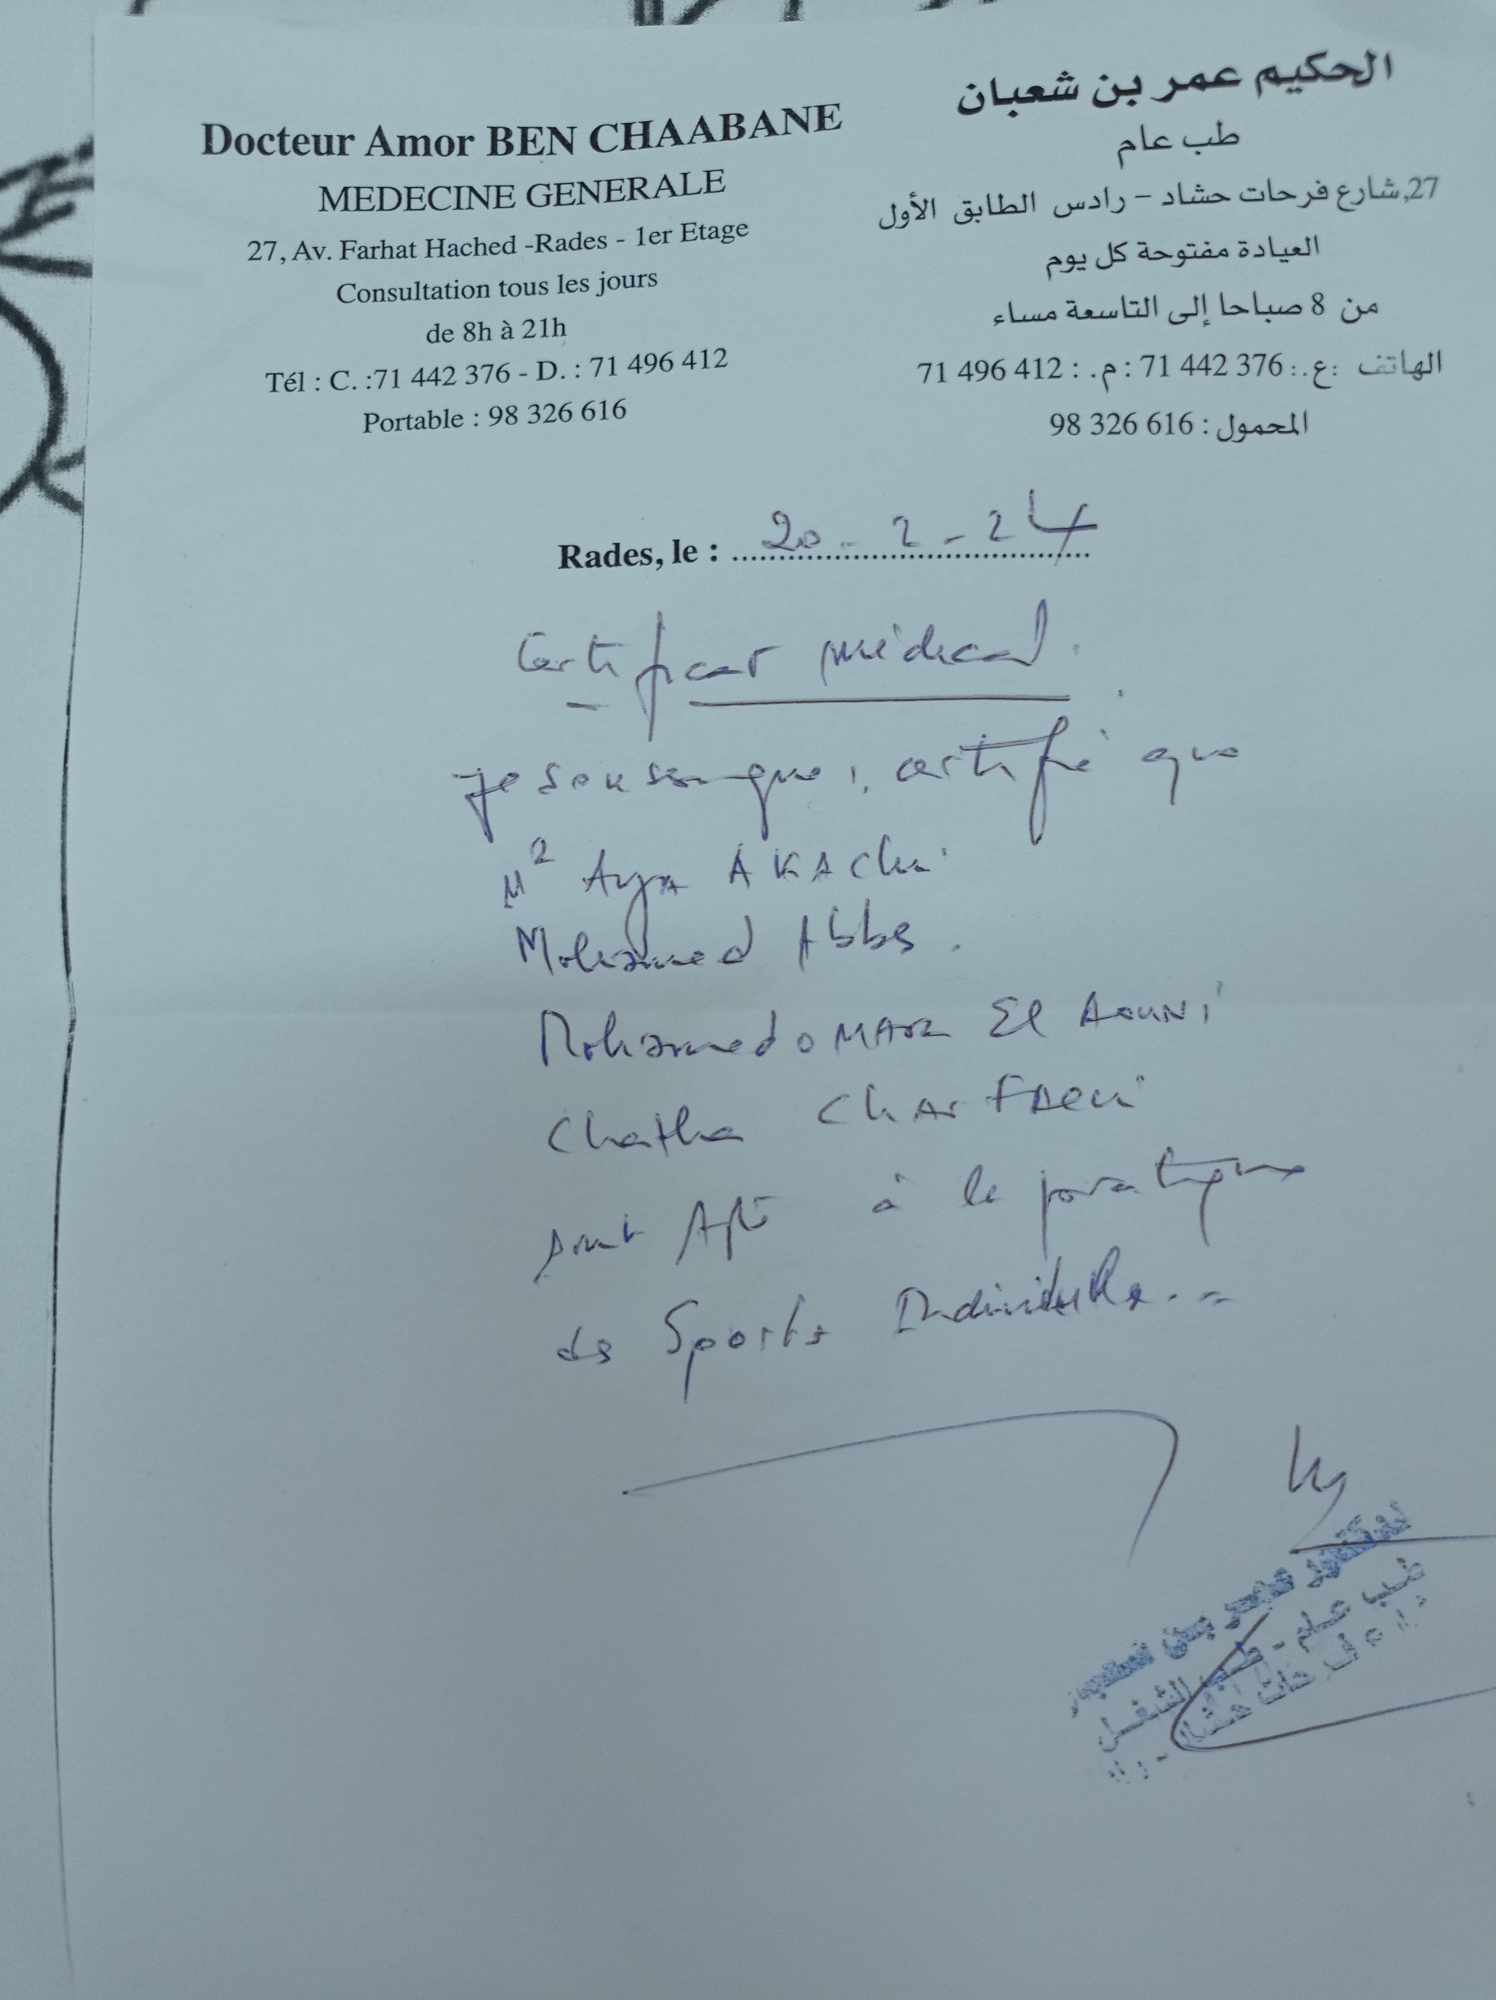 Docteur Amor BEN CHAABANE
MEDECINE GENERALE
27, Av. Farhat Hached -Rades - 1er Etage
Consultation tous les jours
de 8h à 21h
Tél : C. :71 442 376 - D. : 71 496 412
Portable : 98 326 616
الحكيم عمر بن شعبان
طب عام
27,شارع فرحات حشاد – رادس الطابق الأول
العيادة مفتوحة كل يوم
من 8 صباحا إلى التاسعة مساء
الهاتف :ع.: 71 442 376 : م. : 71 496 412
المحمول : 98 326 616
Rades, le : 20-2-24
Certificat médical.
je soussigné, certifié que
Aya AKAChi
Mohamed Abbs.
Mohamed OMAR El AOUNi
Chatha
sont Apt à la pratique
des Sports Individuelle.
عمر بن
طب عام - طب الشغل